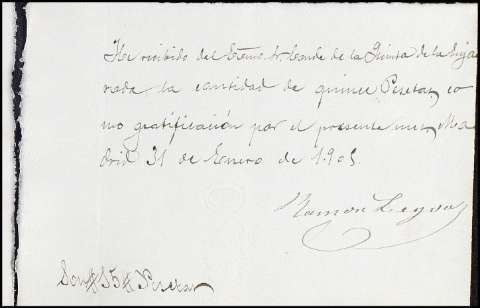 He recibido del Excmo. Sr. Conde de la Quinta de la Enja
rada la cantidad de quince Pesetas co
mo gratificación por el presente mes, Ma
drid 31 de Enero de 1905
Ramon Leyva
Son # 15 # Pesetas